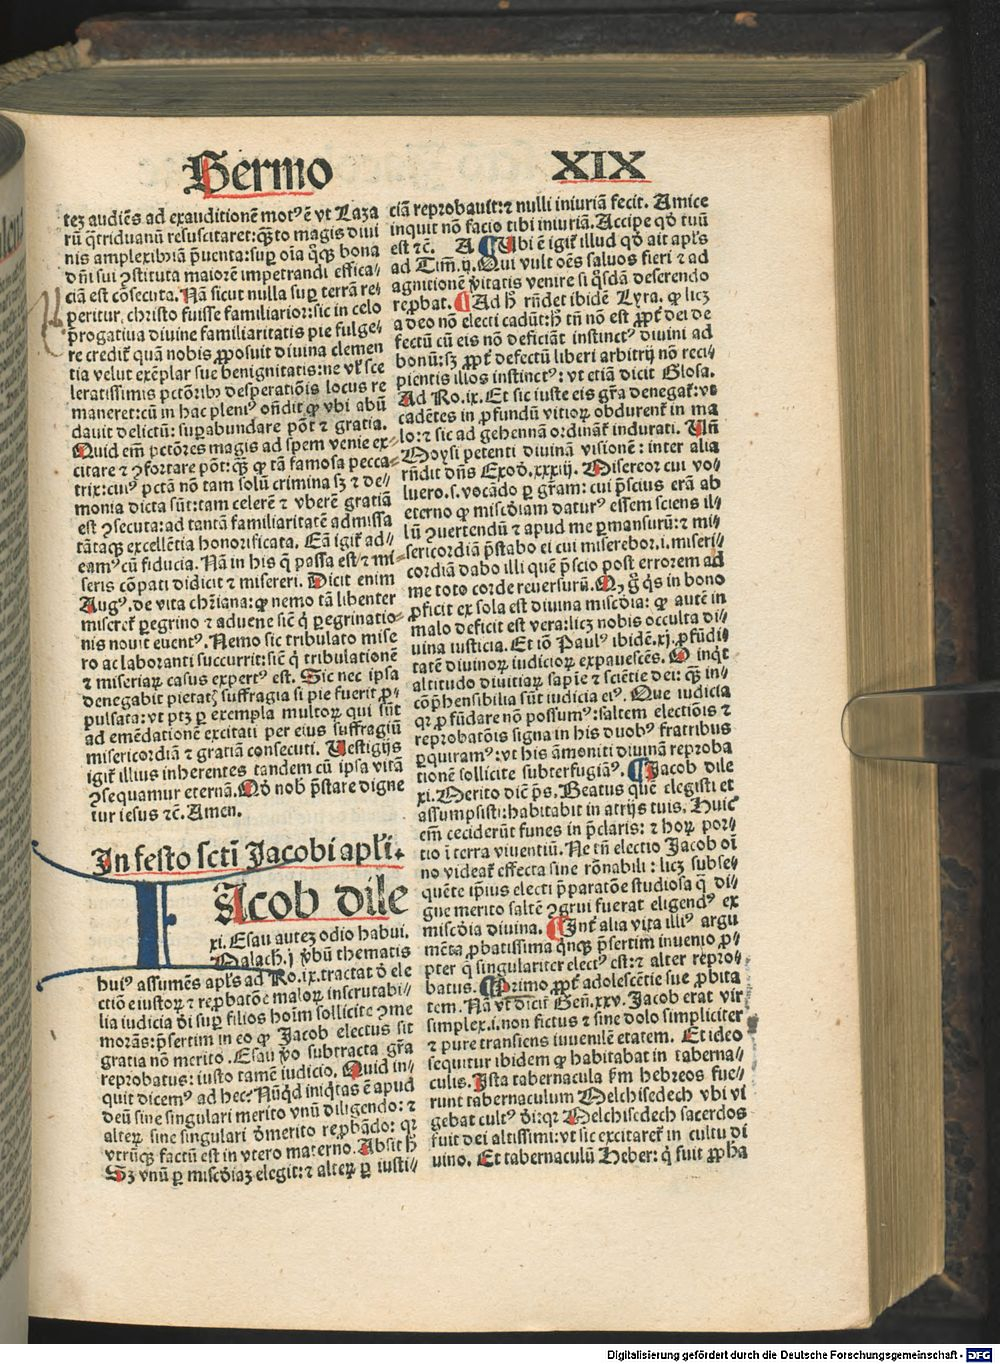 Sermo XIX
tez audiēs ad exauditionē motꝰ ē vt Laza
rū q̄triduanū resuscitaret: q̄ꝫto magis diui
nis amplexibꝰ iā p̄uenta: suꝑ oīa q̄ꝫ bona
dn̄i sui ꝯstituta maiorē impetrandi effica⸗
ciā est cōsecuta. Nā sicut nulla suꝑ terrā re⸗
peritur, christo fuisse familiarior: sic in celo
ꝓrogatiua diuine familiaritatis pie fulge⸗
re credit̄ quā nobis ꝓposuit diuina clemen
tia velut exēplar sue benignitatis: ne vl̓ sce
leratissimis pctōribꝰ desperatiōis locus re
maneret: cū in hac pleniꝰ on̄dit ꝙ vbi abū
dauit delictū: suꝑabundare pōt ⁊ gratia.
Quid em̄ pctōres magis ad spem venie ex⸗
citare ⁊ ꝯfortare pōt: q̄ꝫ ꝙ tā famosa pecca⸗
trix: cuiꝰ pctā nō tam solū crimina sꝫ ⁊ de⸗
monia dicta sūt: tam celerē ⁊ vberē gratiā
est ꝯsecuta: ad tantā familiaritatē admissa
tātaqꝫ excellētia honorificata. Eā igit̄ ad⸗
eamꝰ cū fiducia. Nā in his q̄ passa est/ ⁊ mi⸗
seris cōpati didicit ⁊ misereri. Dicit enim
Augꝰ. de vita chr̄iana: ꝙ nemo tā libenter
miseret̄ ꝑegrino ⁊ aduene sic̄ q̇ ꝑegrinatio⸗
nis nouit euentꝰ. Nemo sic tribulato mise
ro ac laboranti succurrit: sic̄ q̇ tribulationē
⁊ miseriaꝝ casus expertꝰ est. Sic nec ipsa
denegabit pietatꝭ suffragia si pie fuerit ꝓ⸗
pulsata: vt ptꝫ ꝑ exempla multoꝝ qui sūt
ad emēdationē excitati per eius suffragiū
misericordiā ⁊ gratiā consecuti. Uestigijs
igit̄ illius inherentes tandem cū ipsa vitā
ꝯsequamur eternā. Qđ nob̄ p̄stare digne
tur iesus ⁊c̄. Amen.
In festo sctī Jacobi apl̓i.
IAcob dile
xi. Esau autez odio habui.
Malach. j ꝟbū thematis
huiꝰ assumēs apl̓s ad Ro.ix. tractat đ ele
ctiōe iustoꝝ ⁊ reꝓbatōe maloꝝ inscrutabi⸗
lia iudicia đi suꝑ filios hoīm sollicite ꝯme
morās: p̄sertim in eo ꝙ Jacob electus sit
gratia nō merito. Esau ꝟo subtracta gr̄a
reprobatus: iusto tamē iudicio. Quid in⸗
quit dicemꝰ ad hec? Nūqđ iniq̇tas ē apud
deū sine singulari merito vnū diligendo: ⁊
alteꝝ sine singulari đmerito reꝓbādo: qꝛ
vtrūqꝫ factū est in vtero materno. Absit ħ
Sꝫ vnū ꝑ miscđiaꝫ elegit: ⁊ alteꝝ ꝑ iusti⸗
ciā reprobauit: ⁊ nulli iniuriā fecit. Amice
inquit nō facio tibi iniuriā. Accipe qđ tuū
est ⁊c̄. A Ubi ē igit̄ illud qđ ait apl̓s
ad Tim̄.ij. Qui vult oēs saluos fieri ⁊ ad
agnitionē ꝟitatis venire si q̇sdā deserendo
reꝓbat. Ad ħ rn̄det ibidē Lyra. ꝙ licꝫ
a deo nō electi cadūt: ħ tn̄ nō est ꝓpt̄ dei de
fectū cū eis nō deficiāt instinctꝰ diuini ad
bonū: sꝫ ꝓpt̄ defectū liberi arbitrij nō reci⸗
pientis illos instinctꝰ: vt etiā dicit Glosa.
Ad Ro.ix. Et sic iuste eis gr̄a denegat̄: vt
cadētes in ꝓfundū vitioꝝ obdurent̄ in ma
lo: ⁊ sic ad gehennā ordinat̄ indurati. Un̄
Moysi petenti diuinā visionē: inter alia
rn̄dit dn̄s Exođ.xxxiij. Misereor cui vo⸗
luero. s. vocādo ꝑ gr̄am: cui p̄scius erā ab
eterno ꝙ miscđiam daturꝰ essem sciens il⸗
lū ꝯuertendū ⁊ apud me ꝑmansurū: ⁊ mi⸗
sericordiā p̄stabo ei cui miserebor. i. miseri⸗
cordiā dabo illi quē p̄scio post errorem ad
me toto corde reuersurū. Qꝫ g̊ q̇s in bono
ꝓficit ex sola est diuina miscđia: ꝙ autē in
malo deficit est vera: licꝫ nobis occulta di⸗
uina iusticia. Et iō Paulꝰ ibidē.xj. ꝓfūdi⸗
tatē diuinoꝝ iudicioꝝ expauescēs. O inq̇t
altitudo diuitiaꝝ sapiē ⁊ sciētie dei: q̄ꝫ in⸗
cōp̄hensibilia sūt iudicia eiꝰ. Que iudicia
qꝛ ꝓfūdare nō possumꝰ: saltem electiōis ⁊
reprobatōis signa in his duobꝰ fratribus
ꝑquiramꝰ: vt his āmoniti diuinā reproba
tionē sollicite subterfugiāꝰ. Jacob dile
xi. Merito dic̄ p̄s. Beatus quē elegisti et
assumpsisti: habitabit in atrijs tuis. Huic
em̄ ceciderūt funes in p̄claris: ⁊ hoꝝ por⸗
tio ī terra viuentiū. Ne tn̄ electio Jacob oī
no videat̄ effecta sine rōnabili: licꝫ subse⸗
quēte ip̄ius electi p̄paratōe studiosa q̄ di⸗
gne merito saltē ꝯgrui fuerat eligendꝰ ex
miscđia diuina. Int̄ alia vita illiꝰ argu
mēta ꝓbatissima q̇nqꝫ p̄sertim inuenio ꝓ⸗
pter q̄ singulariter electꝰ est: ⁊ alter repro⸗
batus. Primo ꝓpt̄ adolescētie sue ꝓbita
tem. Nā vt dicit̄ Gen̄.xxv. Jacob erat vir
simplex. i. non fictus ⁊ sine dolo simpliciter
⁊ pure transiens iuuenilē etatem. Et ideo
sequitur ibidem ꝙ habitabat in taberna⸗
culis. Ista tabernacula ẜm hebreos fue⸗
runt tabernaculum Melchisedech vbi vi
gebat cultꝰ đi: qꝛ Melchisedech sacerdos
fuit dei altissimi: vt sic excitaret̄ in cultu di
uino. Et tabernaculū Heber: q̇ fuit ꝓpha
Digitalisierung gefördert durch die Deutsche Forschungsgemeinschaft - DFG